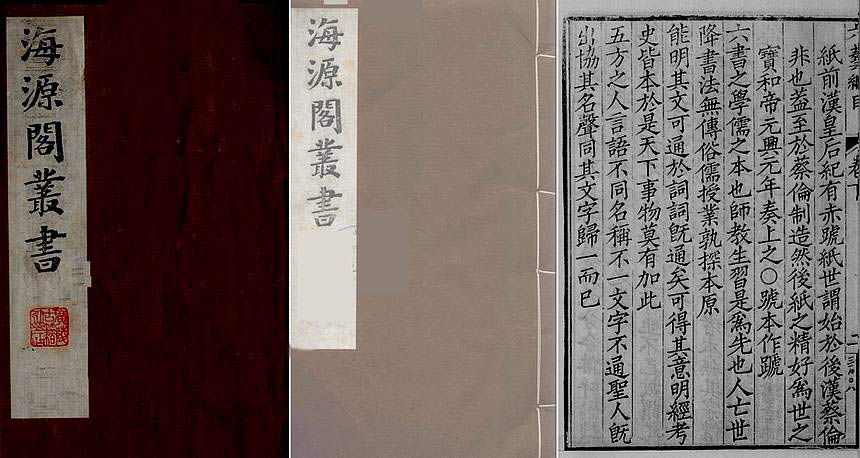 海源閣叢書
海源閣叢書
卷下
紙前漢皇后紀有赤號紙世謂始於後漢蔡倫
非也葢至於蔡倫制造然後紙之精好爲世之
寶和帝元興元年奏上之〇號本作蹏
六書之學儒之本也師教生習是爲先也人亡世
降書法無傳俗儒授業孰探本原
能明其文可通於詞詞旣通矣可得其意明經考
史皆本於是天下事物莫有加此
五方之人言語不同名稱不一文字不通聖人旣
出協其名聲同其文字歸一而已